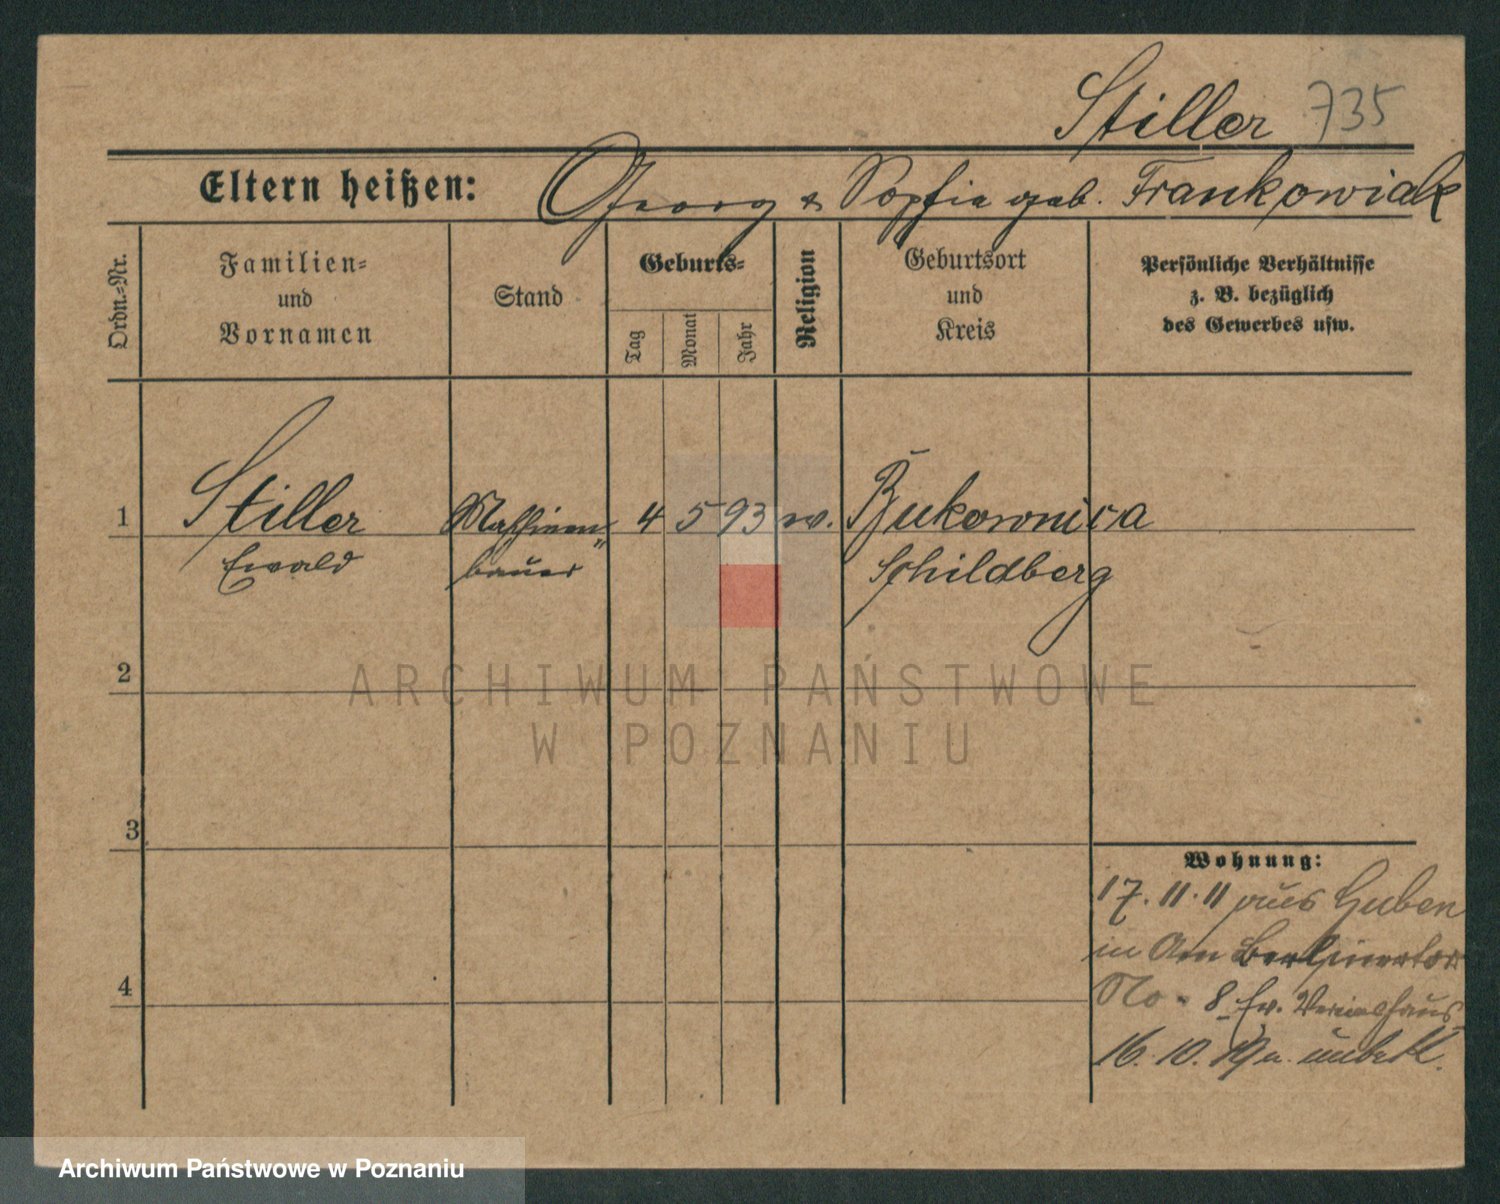 Stiller 735
Eltern heißen: Georg & Sophia geb. Frankowiak
Ordn.-Nr.
Familien-
und
Vornamen
Stand
Geburts-
Tag
Monat
Jahr
Religion
Geburtsort
und
Kreis
Persönliche Verhältnisse
z. B. bezüglich
des Gewerbes usw.
1 Stiller Maschinen- 4 5 93 ev. Bukownica
Ewald bauer Schildberg
2
ARCHIWUM PAŃSTWOWE
W POZNANIU
3
Wohnung:
17.11.11 aus Guben
in Am Berlinertor
4
No. 8 Ev. Vereinshaus
16.10. n. unbek.
Archiwum Państwowe w Poznaniu